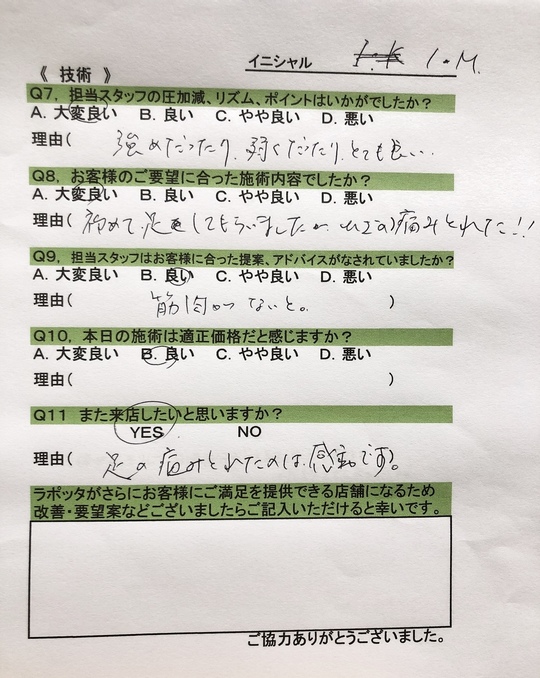 イニシャル I.M.
《 技術 》
Q7，担当スタッフの圧加減、リズム、ポイントはいかがでしたか？
A. 大変良い B. 良い C. やや良い D. 悪い
理由( 強めだったり、弱くだったり、とても良い.
Q8，お客様のご要望に合った施術内容でしたか？
A. 大変良い B. 良い C. やや良い D. 悪い
理由( 初めて、足をしてもらいましたが 痛みとれた!!
Q9，担当スタッフはお客様に合った提案、アドバイスがなされていましたか？
A. 大変良い B. 良い C. やや良い D. 悪い
理由( 筋肉がつないと。 )
Q10，本日の施術は適正価格だと感じますか？
A. 大変良い B. 良い C. やや良い D. 悪い
理由( )
Q11 また来店したいと思いますか？
YES NO
理由( 足の痛みとれたのは、感動です。
ラポッタがさらにお客様にご満足を提供できる店舗になるため
改善・要望案などございましたらご記入いただけると幸いです。
ご協力ありがとうございました。